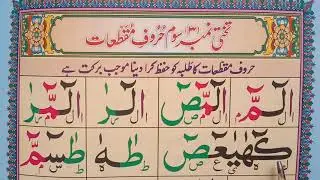 تختی نمبر (۳) سوم حُروفِ مُقطّعات
حروف مقطعات کا طلبہ کو حفظ کرا دینا موجب برکت ہے
الٓمّٓ الٓمّٓصٓ الٓرٰ الٓمّٓرٰ
كٓهٰيٰعٓصٓ طٰهٰ طٰسٓمّٓ